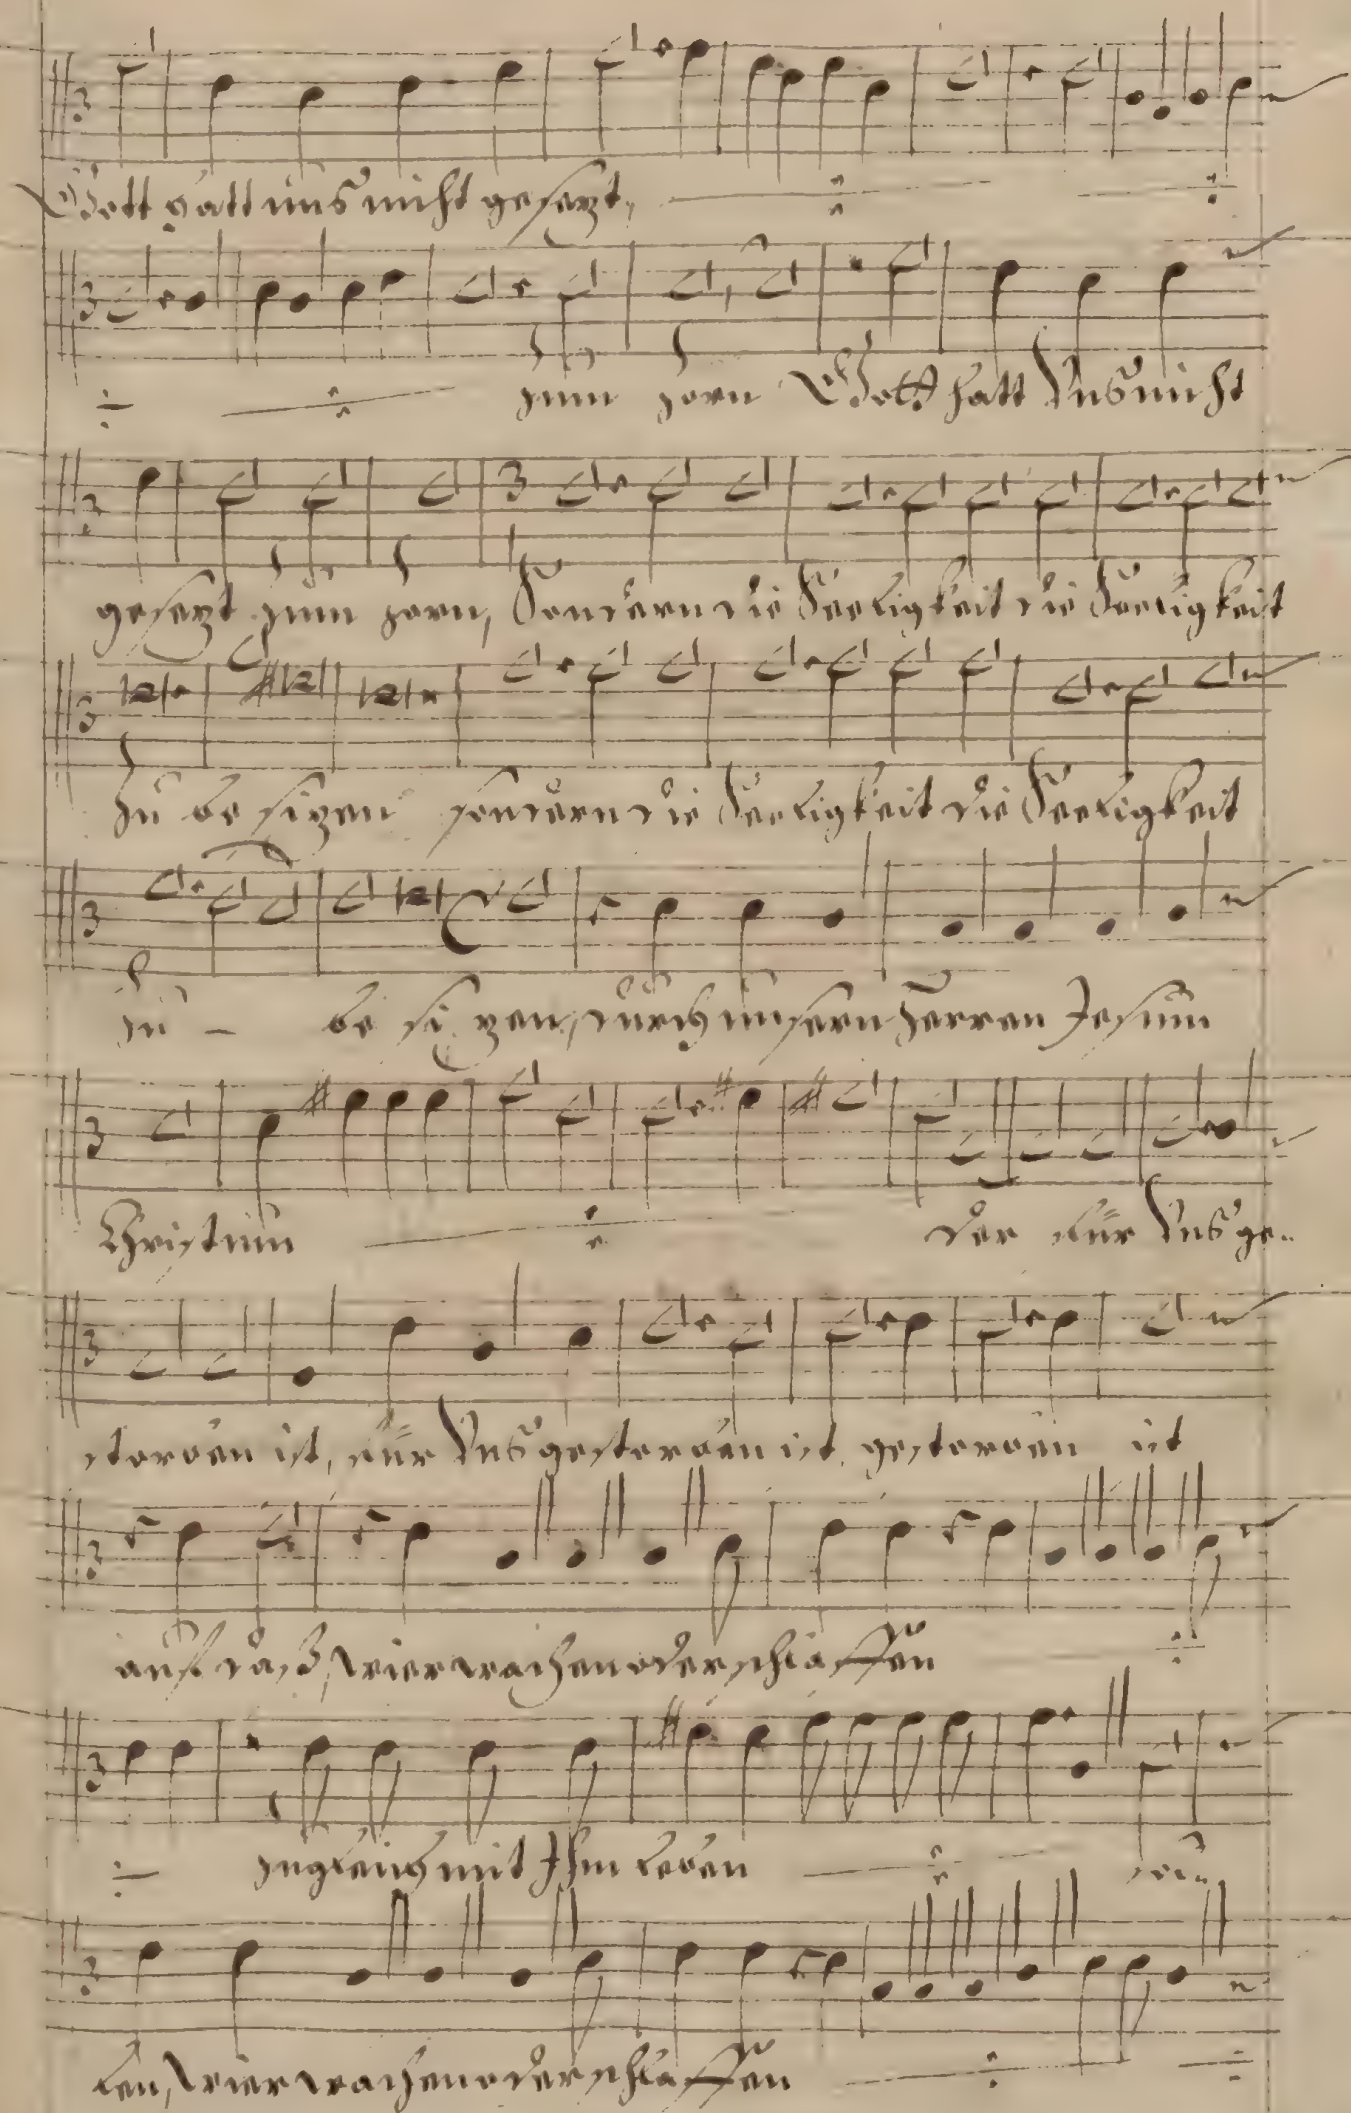 Gott hatt uns nicht gesezt,
zum zorn Gott hatt Unß nicht
gesezt zum zorn, Sondern die Seeligkeit die Seeligkeit
Zu besizen sondern die Seeligkeit die Seeligkeit
zu - besizen, durch unsern Herren Jesum
Christum der für Unß ge-
storben ist, für Unß gestorben ist, gestorben ist
auf daß, wier wachen oder schlaffen
zugleich mit Ihm leben
ben, wier wachen oder schlaffen